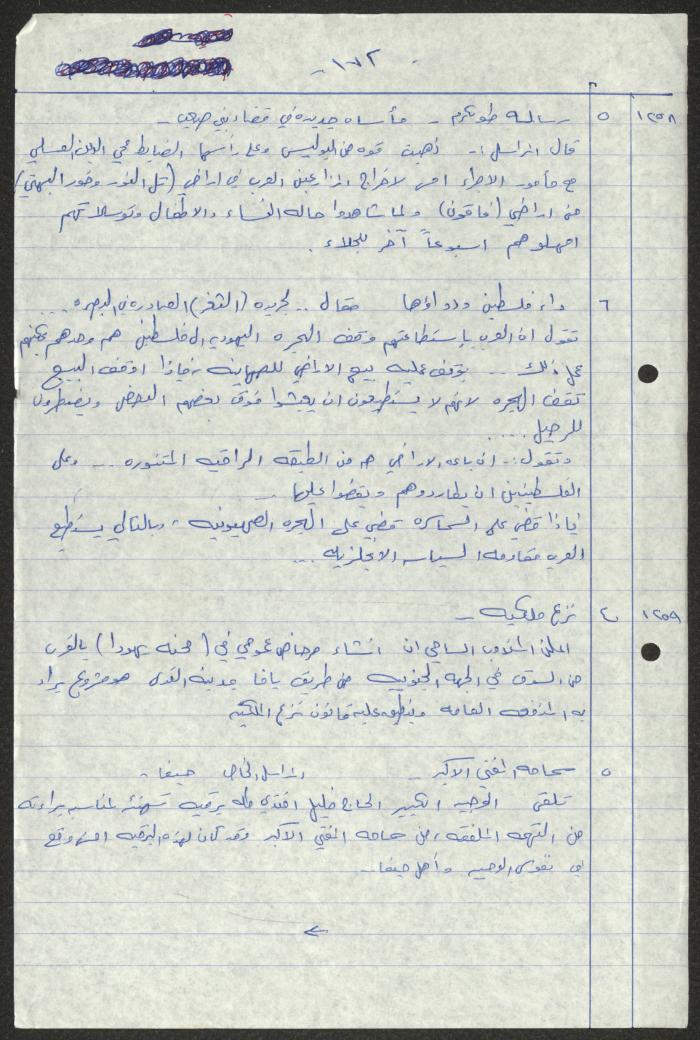 - ١٧٢ -
١٢٥٨ ٥ رسالة طولكرم - مأساه جديده في قضاء بني صعب -
قال المراسل :- ذهبت قوه من البوليس وعلى رأسها الضابط محي الدين العسلي
مع مأمور الاجراء امس لاخراج المزارعين العرب في اراضي (تل النور وخور البهتي)
من اراضي (قاقون) ولما شاهدوا حاله النساء والاطفال وتوسلاتهم
امهلوهم اسبوعاً آخر للجلاء .
٦ داء فلسطين ودواؤها مقال .. لجريده (الثغر) الصادره في البصره ...
تقول ان العرب بإستطاعتهم وقف الهجره اليهوديه الى فلسطين هم وحدهم يمكنهم
عمل ذلك ... بوقف عمليه بيع الاراضي للصهاينه ، فإذا اوقف البيع
تقف الهجره لانهم لا يستطيعون ان يعيشوا فوق بعضهم البعض ويضطرون
للرحيل ....
وتقول :- ان باعه الاراضي هم من الطبقه الراقيه المتنوره ... وعلى
الفلسطينيين ان يطاردوهم ويقضوا عليها -
فإذا قضي على السماسره قضي على الهجره الصهيونيه ، وبالتالي يستطيع
العرب مقاومه السياسه الانجليزيه ...
١٢٥٩ ٤ نزع ملكيه -
اعلن المندوب السامي ان انشاء مرحاض عمومي في (محنه يهودا) بالقرب
من السوق في الجهه الجنوبيه من طريق يافا مدينه القدس هو مشروع يراد
به المنفعه العامه وينطبق عليه قانون نزع الملكيه
٥ سماحه المفتي الاكبر .. المراسل الخاص حيفا :-
تلقى الوجيه الكبير الحاج خليل افندي طه برقيه تهنئه بمناسبه براءته
من التهمه الملفقه ، من سماحه المفتي الاكبر وقد كان لهذه البرقيه احسن وقع
في نفوس الوجيه وأهل حيفا ..
←